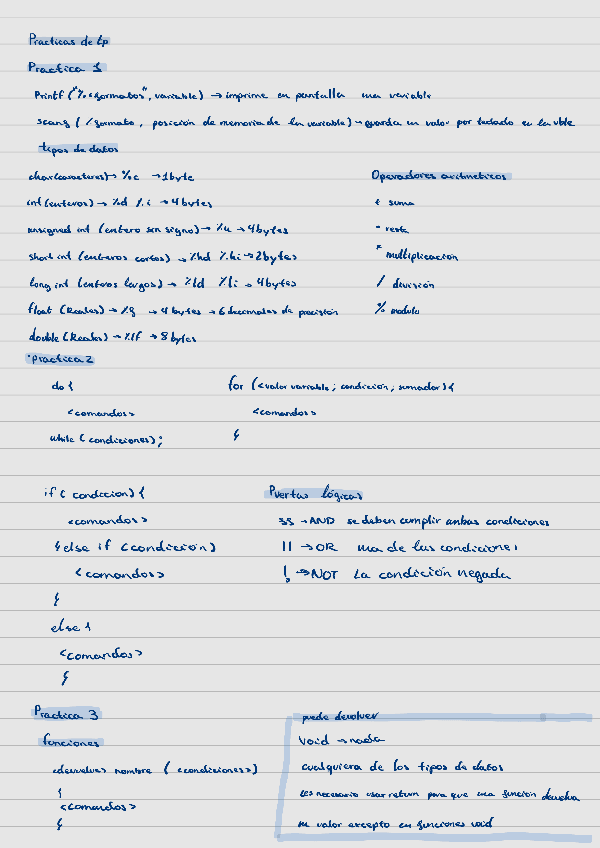 Practicas de Lp
Practica 1
Printf ("%<formatos", variable) → imprime en pantalla una variable
scanf ( /formato, posición de memoria de la variable) → guarda un valor por teclado en la vble
tipos de datos
char(caracteres) → %c → 1 byte
Operadores aritmeticos
int (enteros) → %d %i → 4 bytes
+ suma
unsigned int (entero sin signo) → %u → 4 bytes
- resta
short int (enteros cortos) → %hd %hi → 2 bytes
* multiplicacion
long int (enteros largos) → %ld %li → 4 bytes
/ división
float (Reales) → %f → 4 bytes → 6 decimales de precisión
% modulo
double (Reales) → %lf → 8 bytes
·practica 2
do {
for (<valor variable; condición; sumador){
<comandos>
<comandos>
while (condiciones);
}
if ( condicion) {
Puertas lógicas
<comandos>
&& → AND se deben cumplir ambas condiciones
}else if (condición)
|| → OR una de las condiciones
<comandos>
! → NOT La condición negada
}
else {
<comandos>
}
Practica 3
puede devolver
funciones
void → nada
<devuelve> nombre ( <condiciones>)
cualquiera de los tipos de datos
{
es necesario usar return para que una función devuelva
<comandos>
}
un valor excepto en funciones void